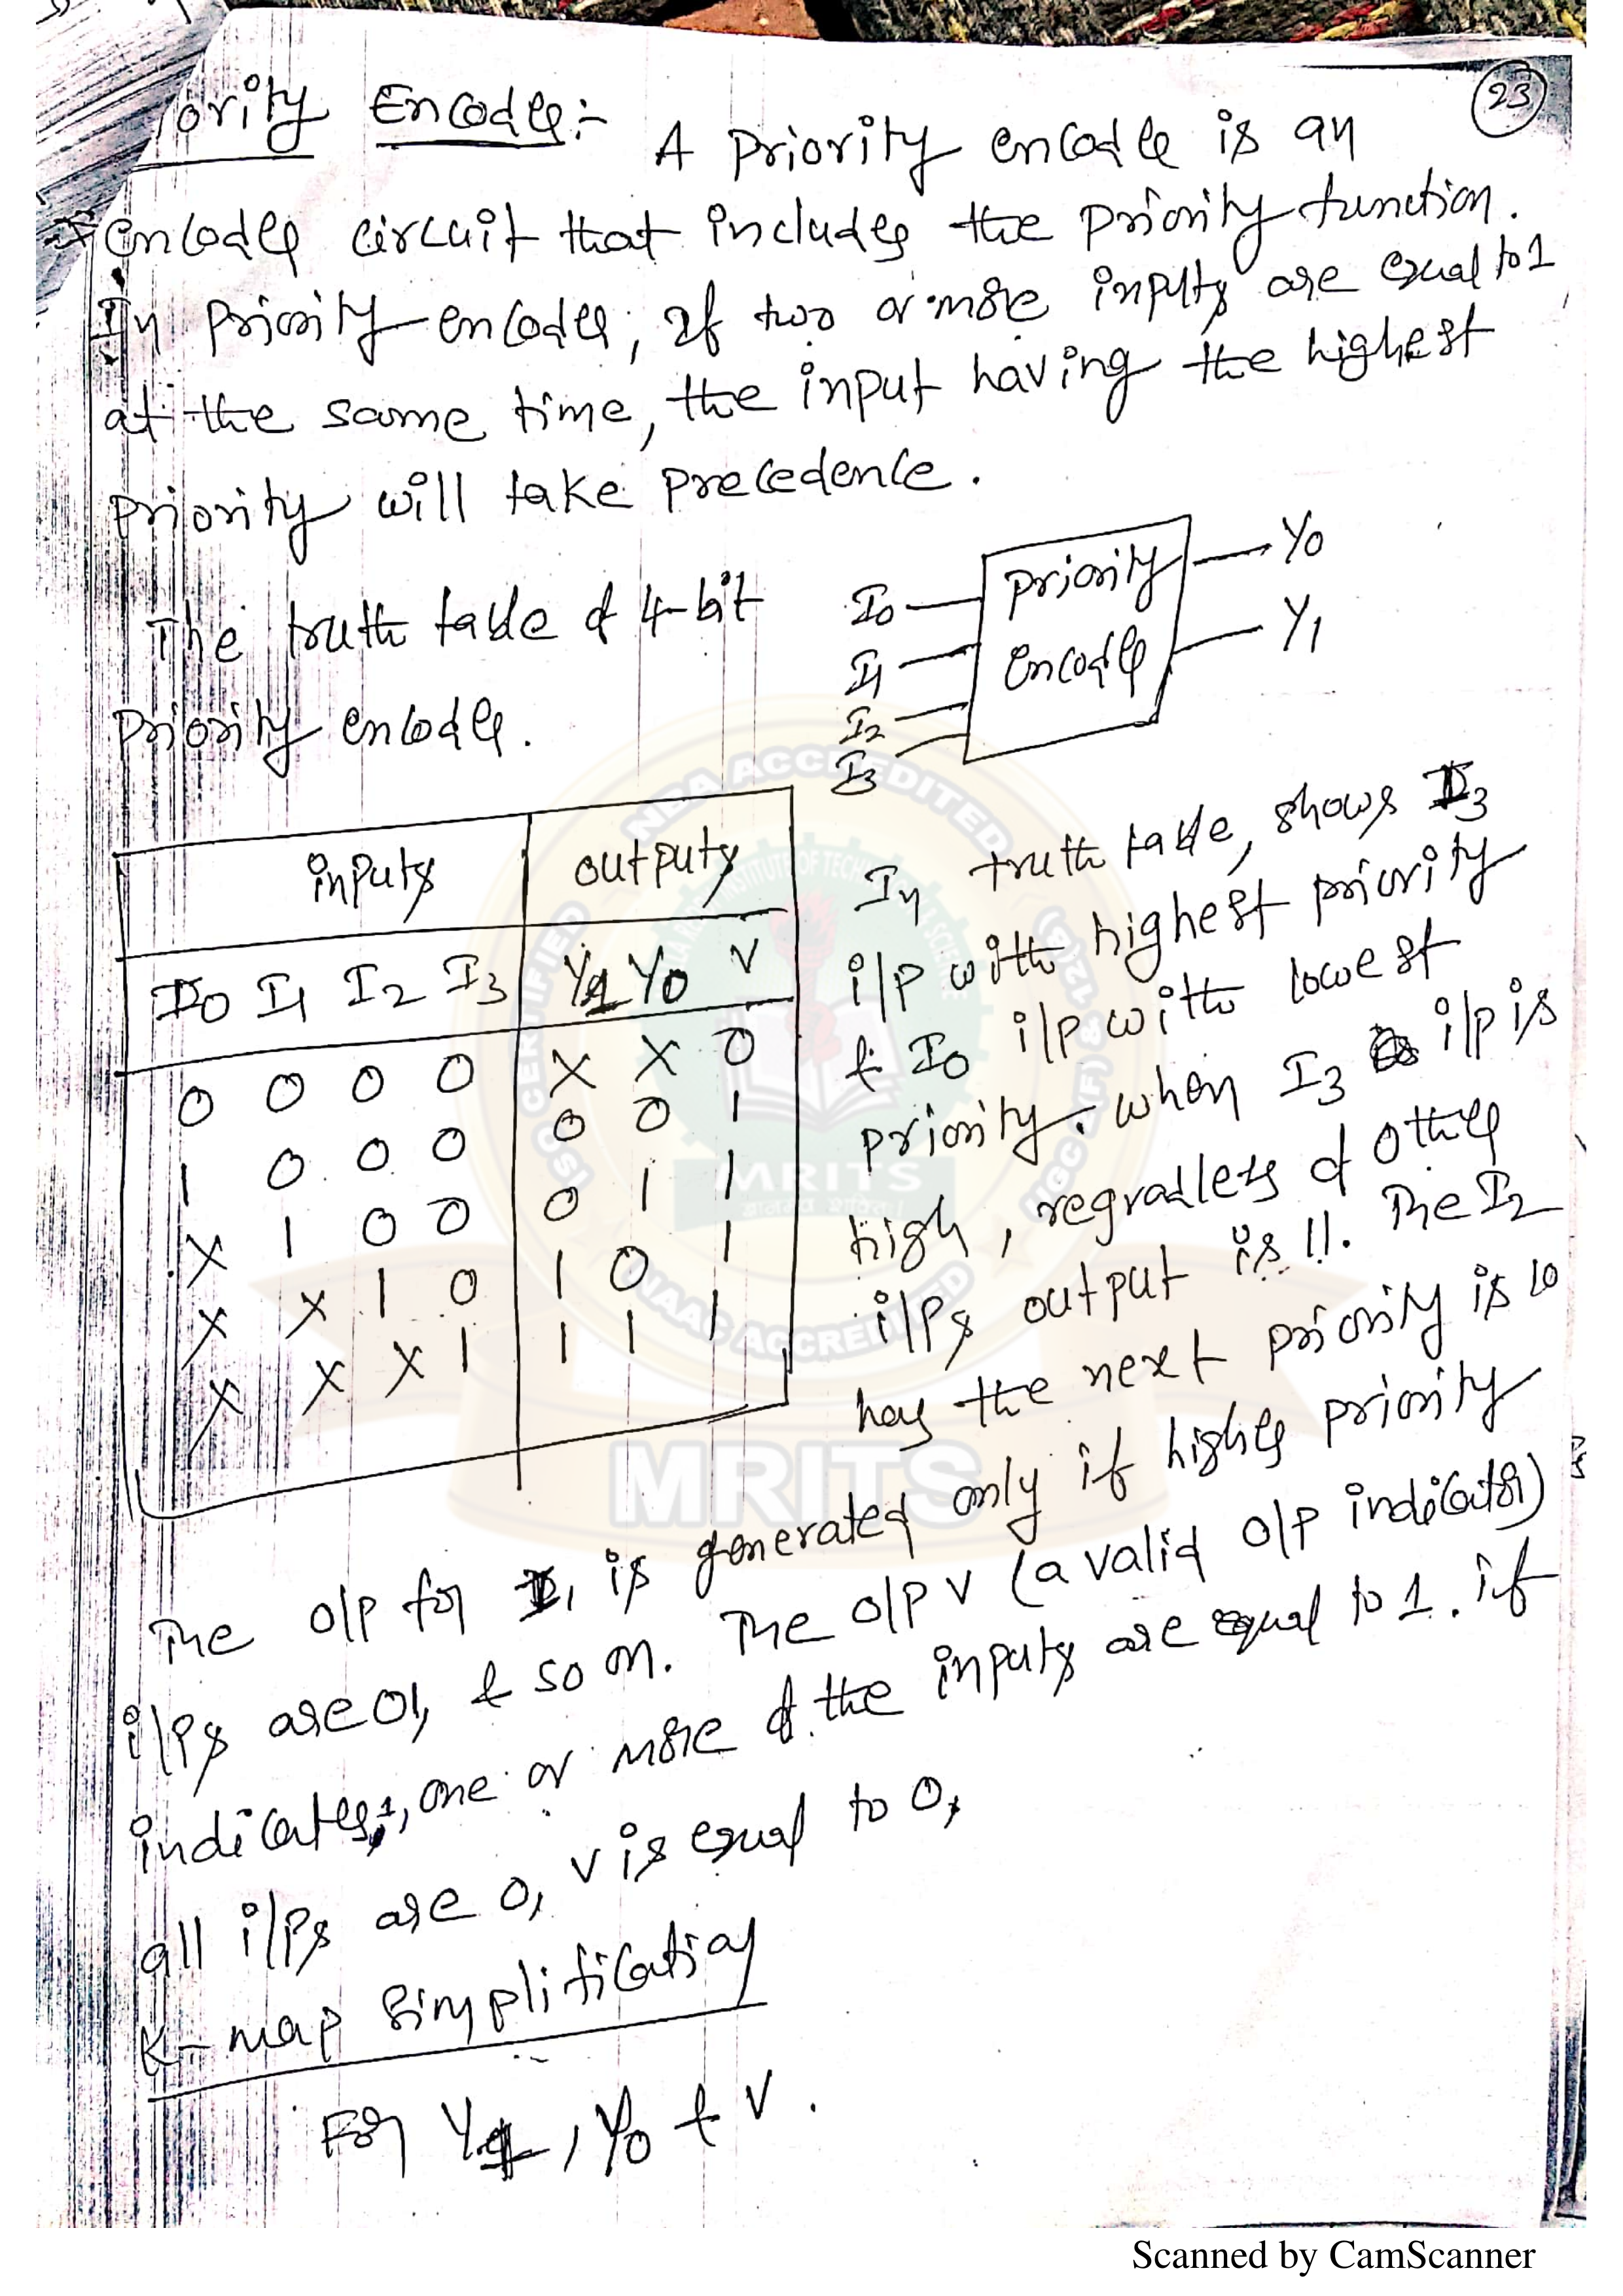 23
ority Encoder:- A priority encoder is an
encoder circuit that includes the priority function.
In priority encoder, if two or more inputs are equal to 1
at the same time, the input having the highest
priority will take precedence.
The truth table of 4-bit
priority encoder.
I0
I1
I2
I3
priority
encoder
Y0
Y1
inputs outputs
I0 I1 I2 I3 Y1 Y0 V
0 0 0 0 X X 0
1 0 0 0 0 0 1
X 1 0 0 0 1 1
X X 1 0 1 0 1
X X X 1 1 1 1
In truth table, shows I3
i/p with highest priority
& I0 i/p with lowest
priority. when I3 i/p is
high, regradless of other
i/ps output is 11. The I2
has the next priority is 10
The o/p for I1 is generated only if higher priority
i/ps are 01, & so on. The o/p V (a valid o/p indicator)
indicates, one or more of the inputs are equal to 1. if
all i/ps are 0, V is equal to 0,
K-map Simplification
For Y1, Y0 & V.
NBA ACCREDITED
CERTIFIED
NAAC ACCREDITED
MRITS
MRITS
Scanned by CamScanner